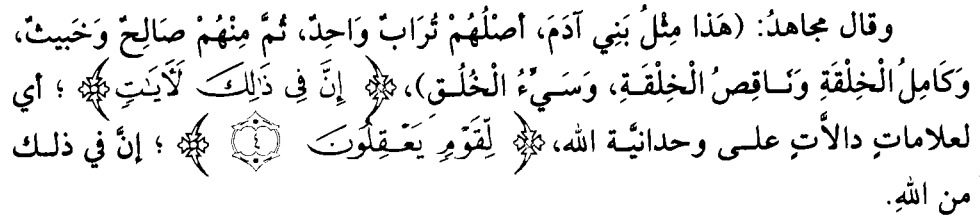 وقال مجاهدُ: (هَذَا مِثْلُ بَنِي آدَمَ، أصْلُهُمْ تُرَابٌ وَاحِدٌ، ثُمَّ مِنْهُمْ صَالِحٌ وَخَبِيثٌ،
وَكَامِلُ الْخِلْقَةِ وَنَاقِصُ الْخِلْقَةِ، وَسَيِّءُ الْخُلُقِ)، ﴿إِنَّ فِي ذَٰلِكَ لَأَيَٰتٍ﴾ ؛ أي
لعلاماتٍ دالاَّتٍ على وحدانيَّة الله، ﴿لِّقَوْمٍ يَعْقِلُونَ ٤﴾ ؛ إنَّ في ذلك
من اللهِ.